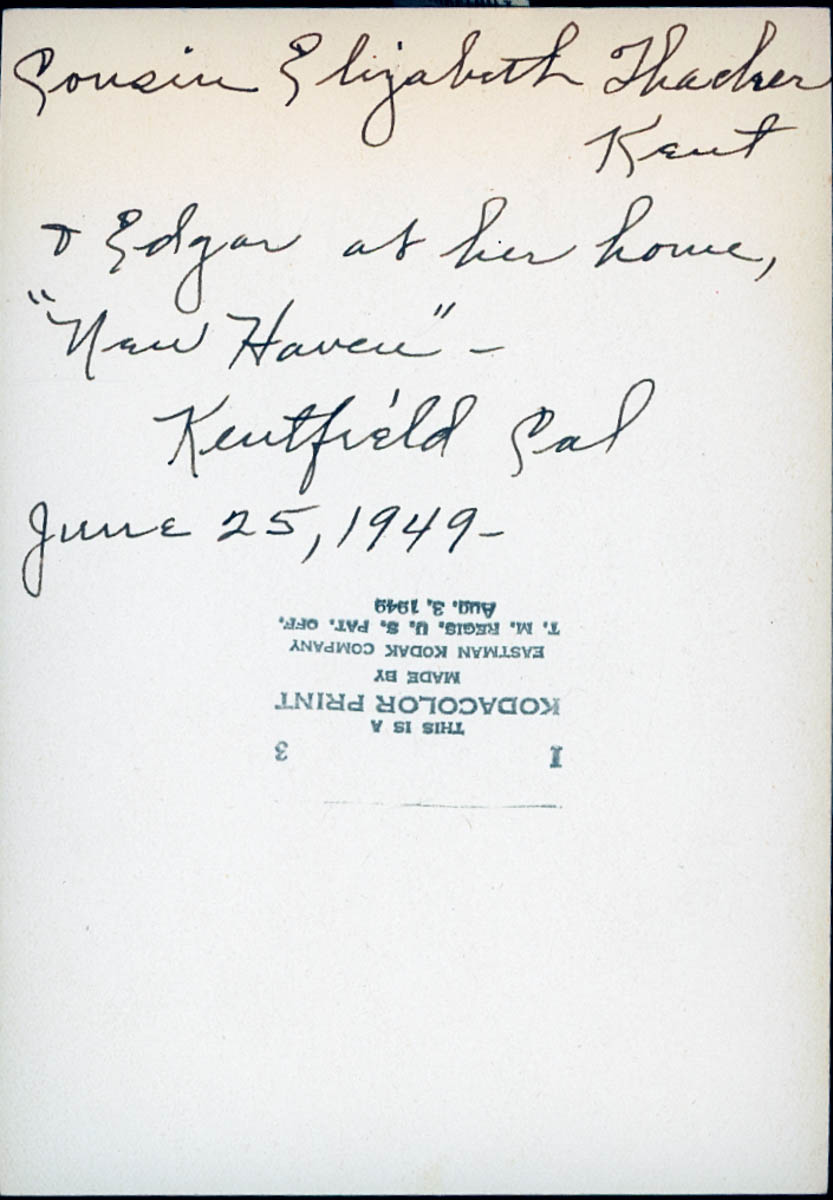 Cousin Elizabeth Thacher
Kent
& Edgar at her home,
"New Haven" -
Kentfield Cal
June 25, 1949-
I 3
THIS IS A
KODACOLOR PRINT
MADE BY
EASTMAN KODAK COMPANY
T. M. REGIS. U. S. PAT. OFF.
Aug. 3, 1949